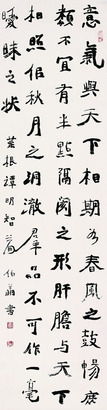 意氣與天下相期如春風之鼓暢庶
類不宜有半點隔閡之形肝膽與天下
相照似秋月之洞澈羣品不可作一毫
曖昧之狀 菜根譚明智篇